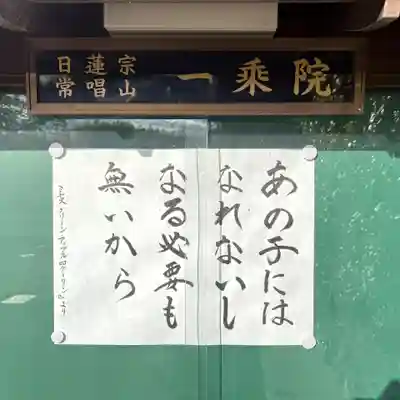 日蓮宗
常唱山
一乗院
あの子には
なれないし
なる必要も
無いから
ミセス グリーン アップル
より